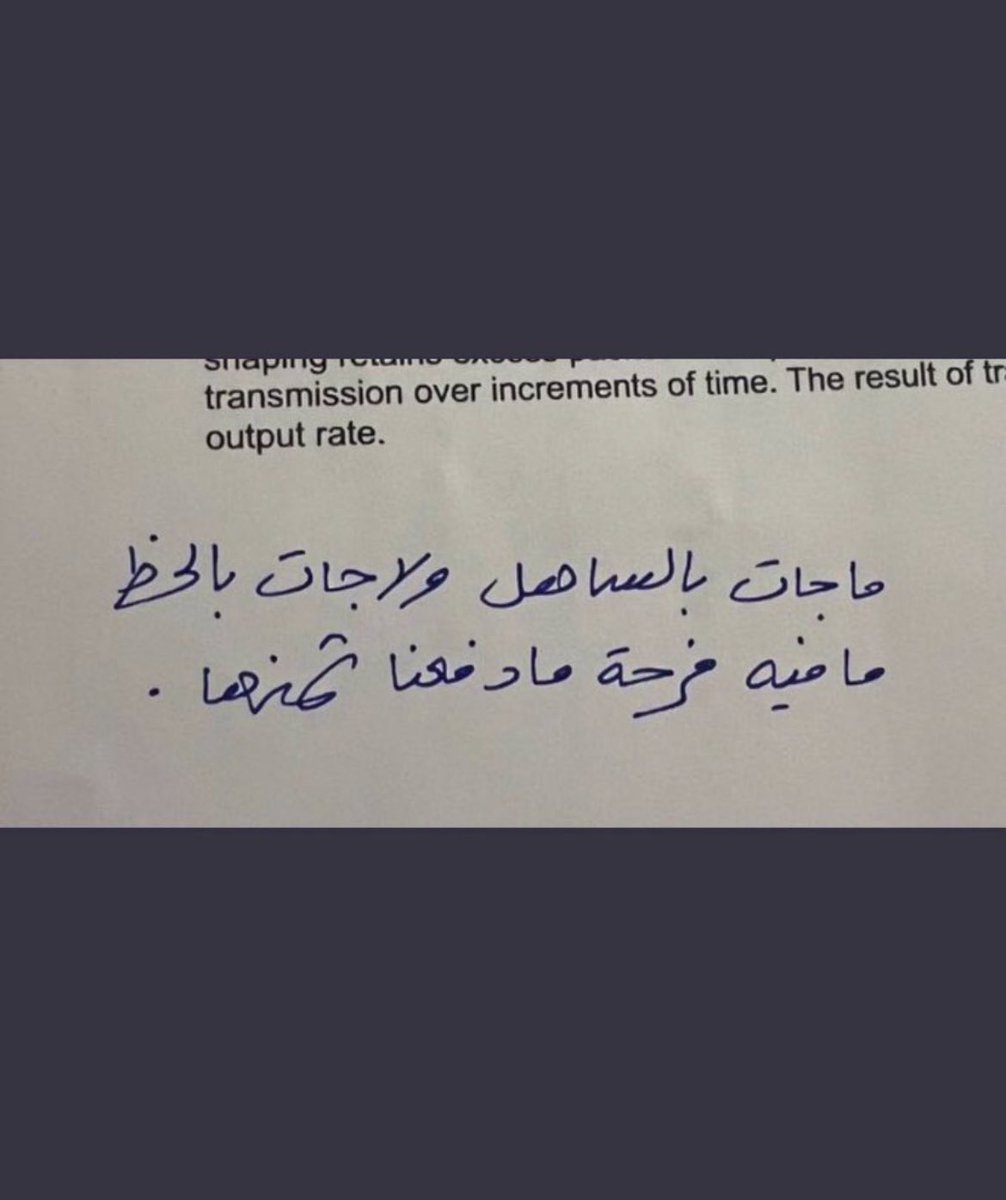 shaping retains excess
transmission over increments of time. The result of tr
output rate.
ماجات بالساهل ولاجات بالحظ
مافيه فرحة مادفعنا ثمنها .